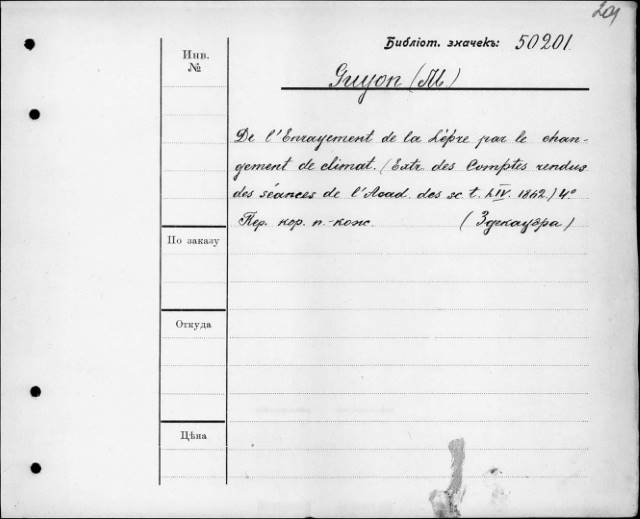 204
Библіот. значекъ: 50201
Инв.
№
Guyon (M)
De l'Enrayement de la Lèpre par le chan-
gement de climat. (Extr. des Comptes rendus
des séances de l'Acad. des sc. t. LIV. 1862) 4°
Пер. кор. п.-кож. (Здекауэра)
По заказу
Откуда
Цѣна